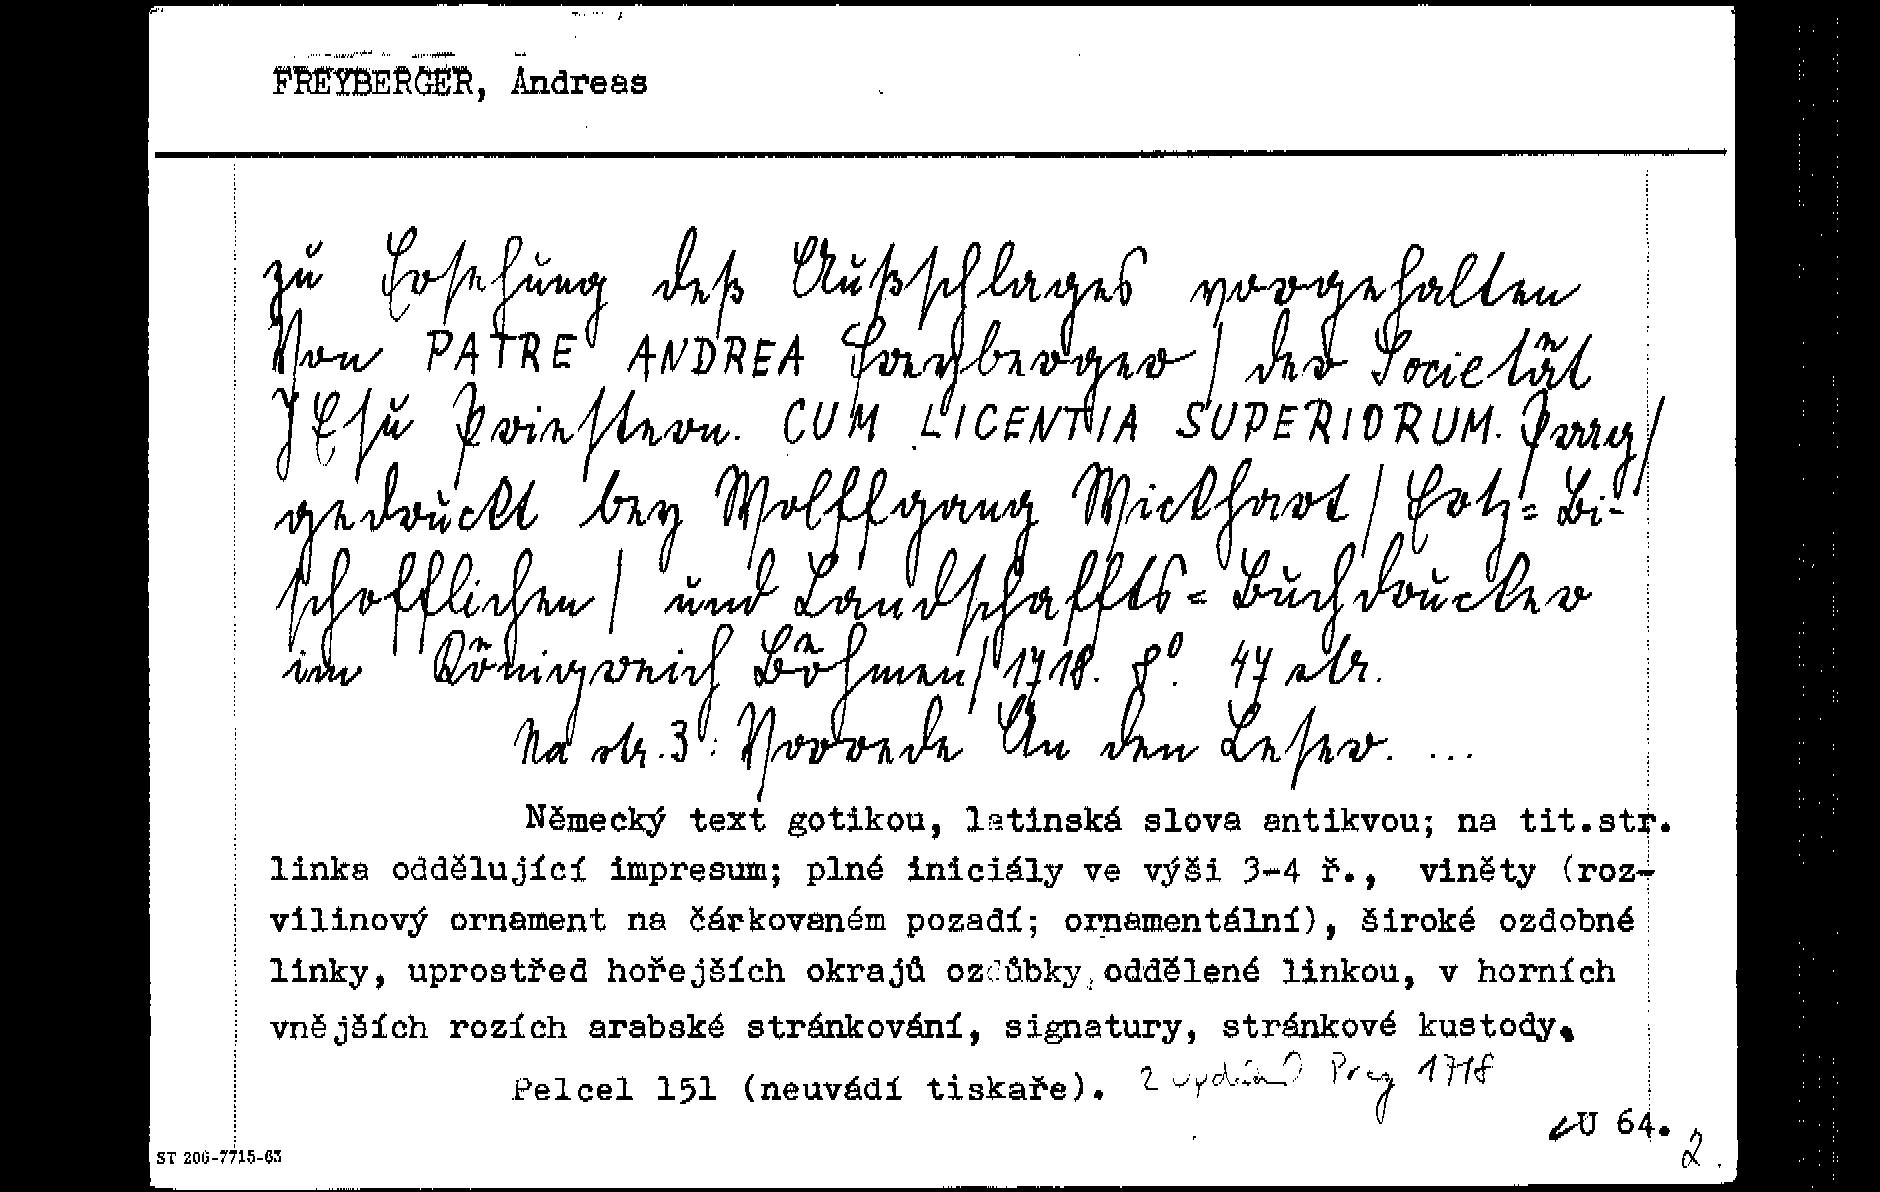 FREYBERGER, Andreas
zu Ersehung deß Außschlages vorgehalten
Von PATRE ANDREA Freyberger / der Societät
JEsu Priestern. CUM LICENTIA SUPERIORUM. Prag /
gedruckt bey Wolffgang Wickhart / Ertz= Bi-
schofflichen / und Landschaffts= Buchdrucker
im Königreich Böhmen / 1718. 8°. 47 str.
Na str. 3: Vorrede An den Leser. ...
Německý text gotikou, latinská slova antikvou; na tit.str.
linka oddělující impresum; plné iniciály ve výši 3-4 ř., viněty (roz-
vilinový ornament na čárkovaném pozadí; ornamentální), široké ozdobné
linky, uprostřed hořejších okrajů ozdůbky, oddělené linkou, v horních
vnějších rozích arabské stránkování, signatury, stránkové kustody.
Pelcel 151 (neuvádí tiskaře). 2 vydání Prag 1718
U 64.
2.
ST 206-7715-63